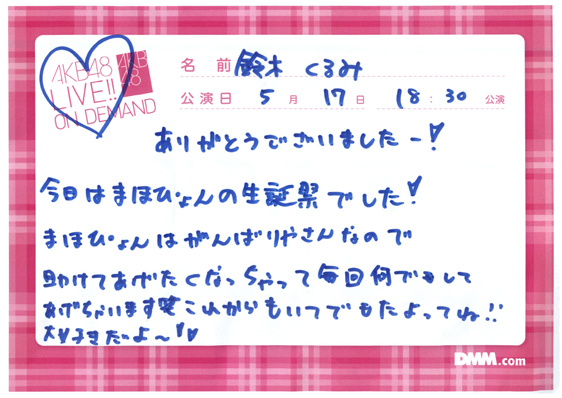 AKB48
LIVE!!
ON DEMAND
AKB
48
名 前 鈴木 くるみ
公演日 5 月 17 日 18:30 公演
ありがとうございましたー!
今日はまほぴょんの生誕祭でした!
まほぴょんはがんばりやさんなので
助けてあげたくなっちゃって毎回何でもして
あげちゃいます笑これからもいつでもたよってね!!
大好きだよ〜♡♡
DMM.com